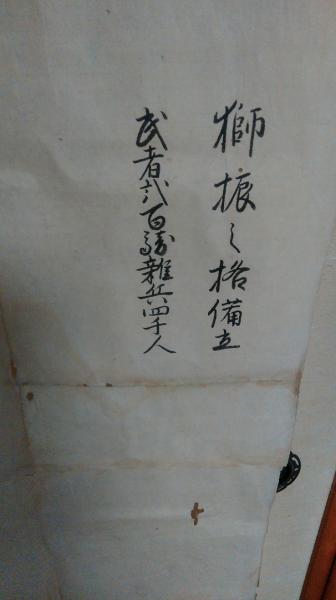 獅振之格備立
武者弐百騎雑兵四千人